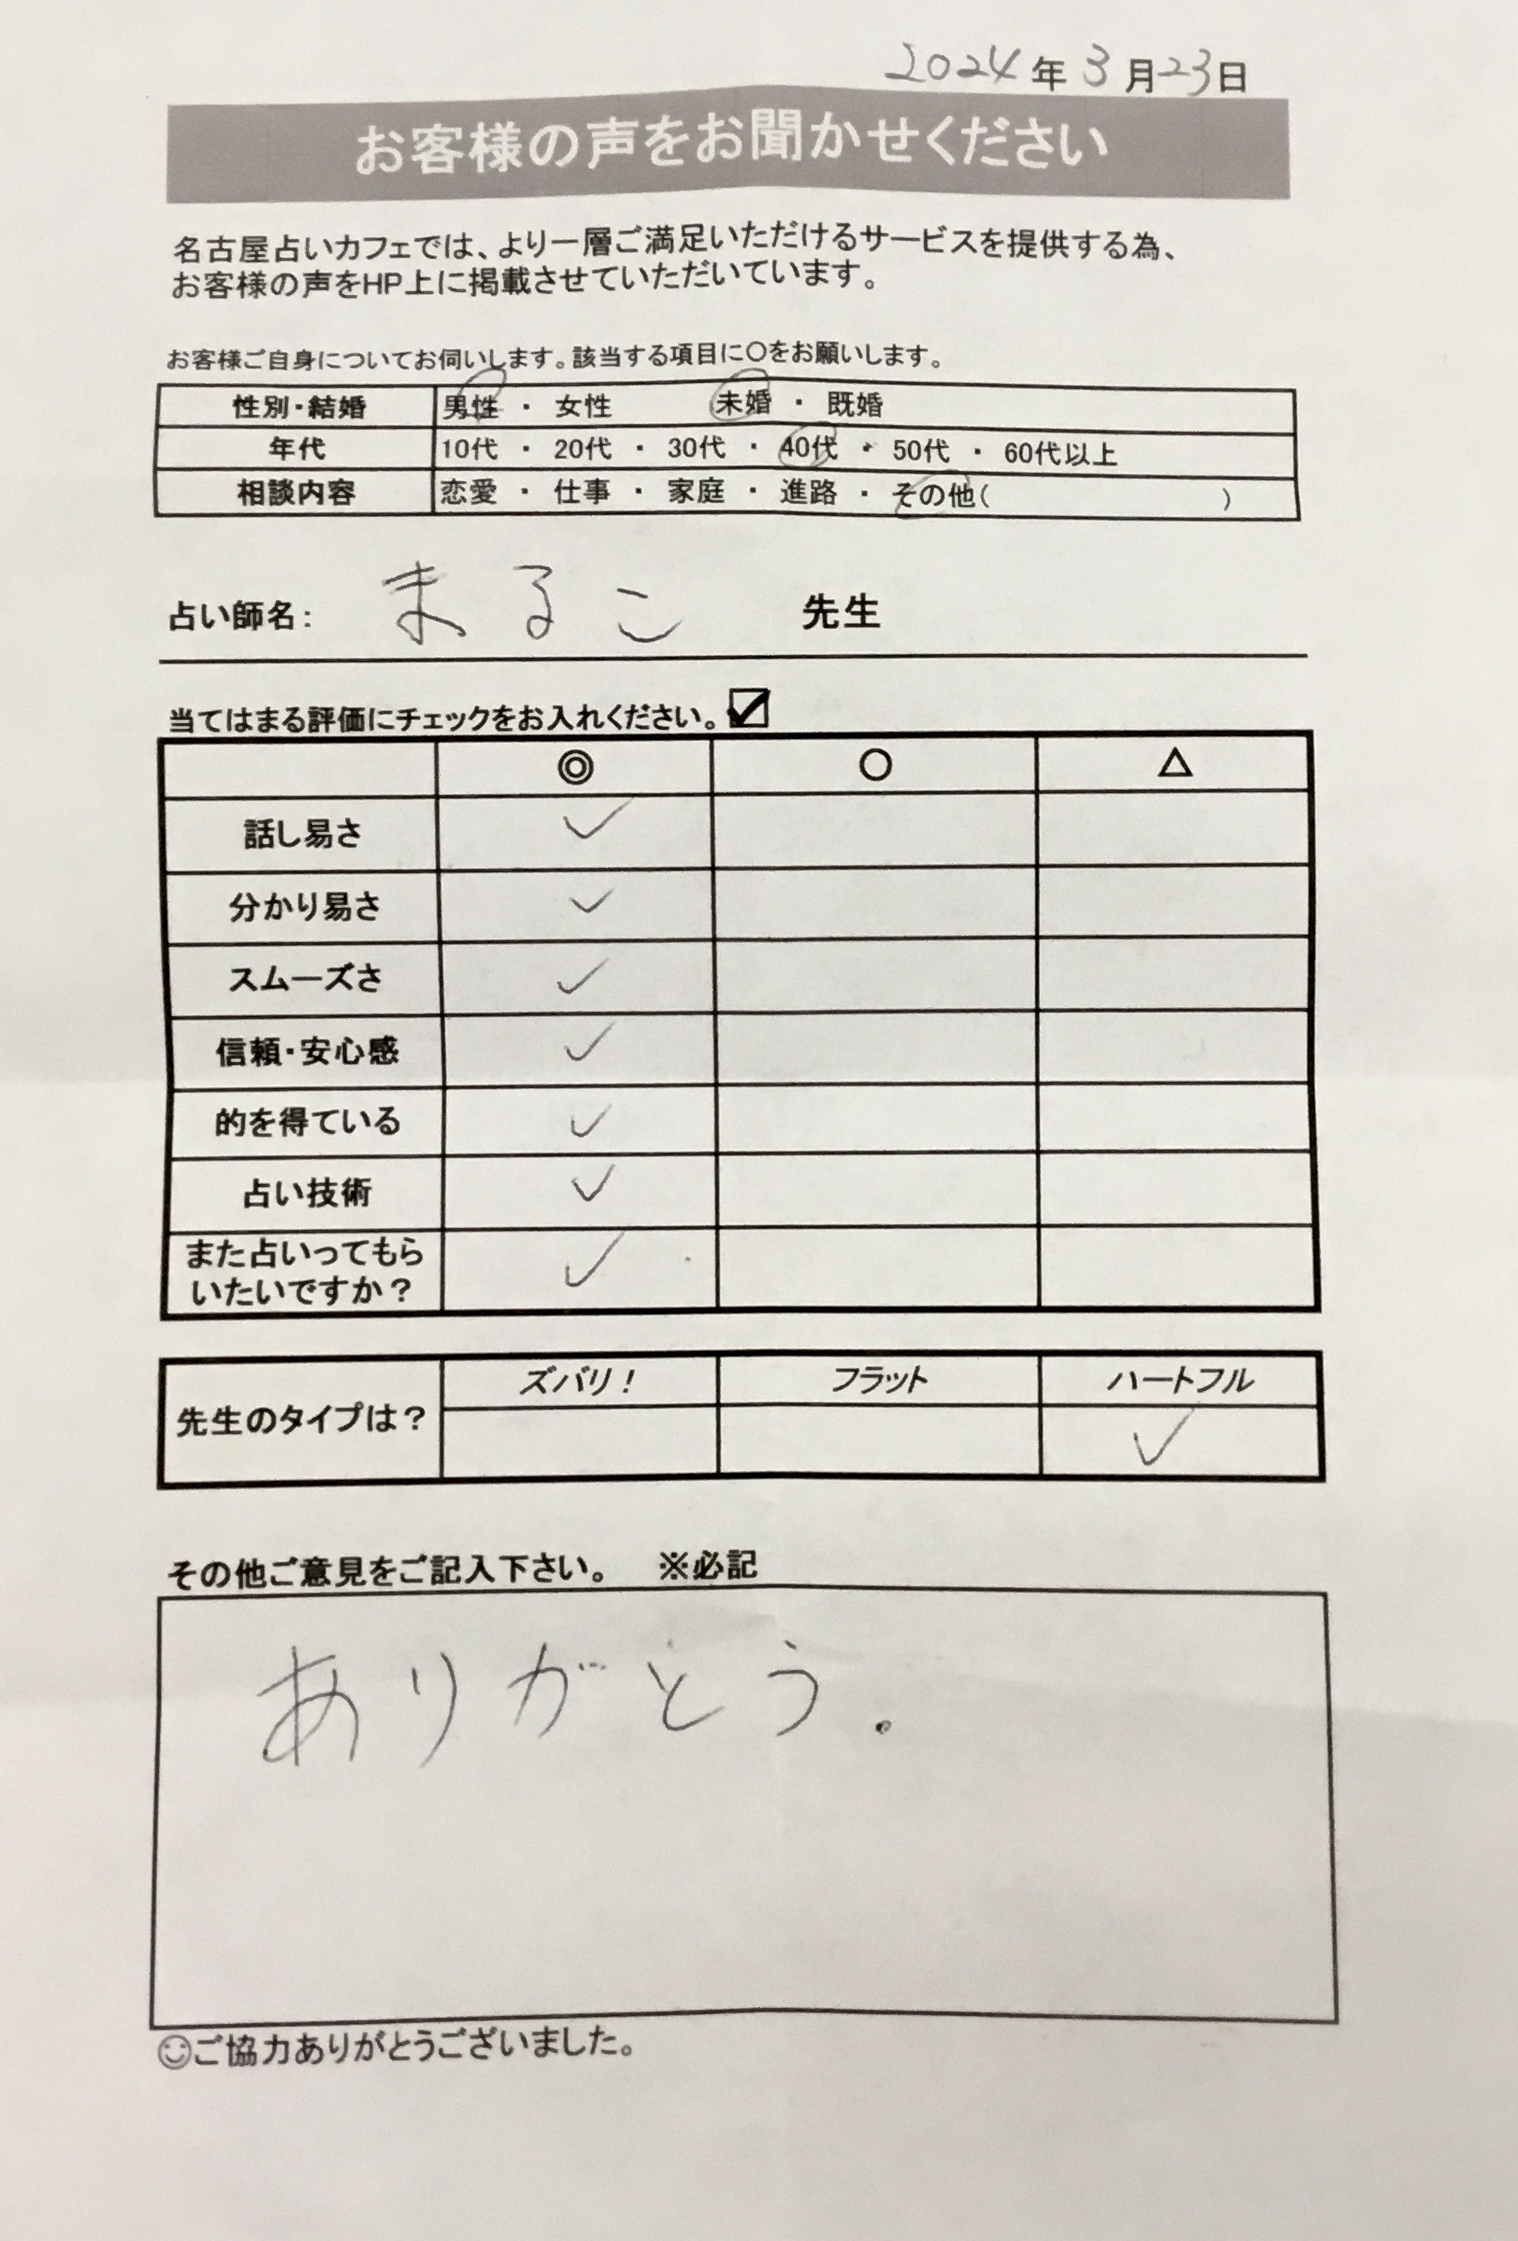 2024年3月23日
お客様の声をお聞かせください
名古屋占いカフェでは、より一層ご満足いただけるサービスを提供する為、
お客様の声をHP上に掲載させていただいています。
お客様ご自身についてお伺いします。該当する項目に〇をお願いします。
性別・結婚 男性 ・ 女性 未婚 ・ 既婚
年代 10代 ・ 20代 ・ 30代 ・ 40代 ・ 50代 ・ 60代以上
相談内容 恋愛 ・ 仕事 ・ 家庭 ・ 進路 ・ その他( )
占い師名: まるこ 先生
当てはまる評価にチェックをお入れください。☑
◎ ○ △
話し易さ ✓
分かり易さ ✓
スムーズさ ✓
信頼・安心感 ✓
的を得ている ✓
占い技術 ✓
また占いってもら
いたいですか? ✓
ズバリ! フラット ハートフル
先生のタイプは? ✓
その他ご意見をご記入下さい。 ※必記
ありがとう。
☺ご協力ありがとうございました。